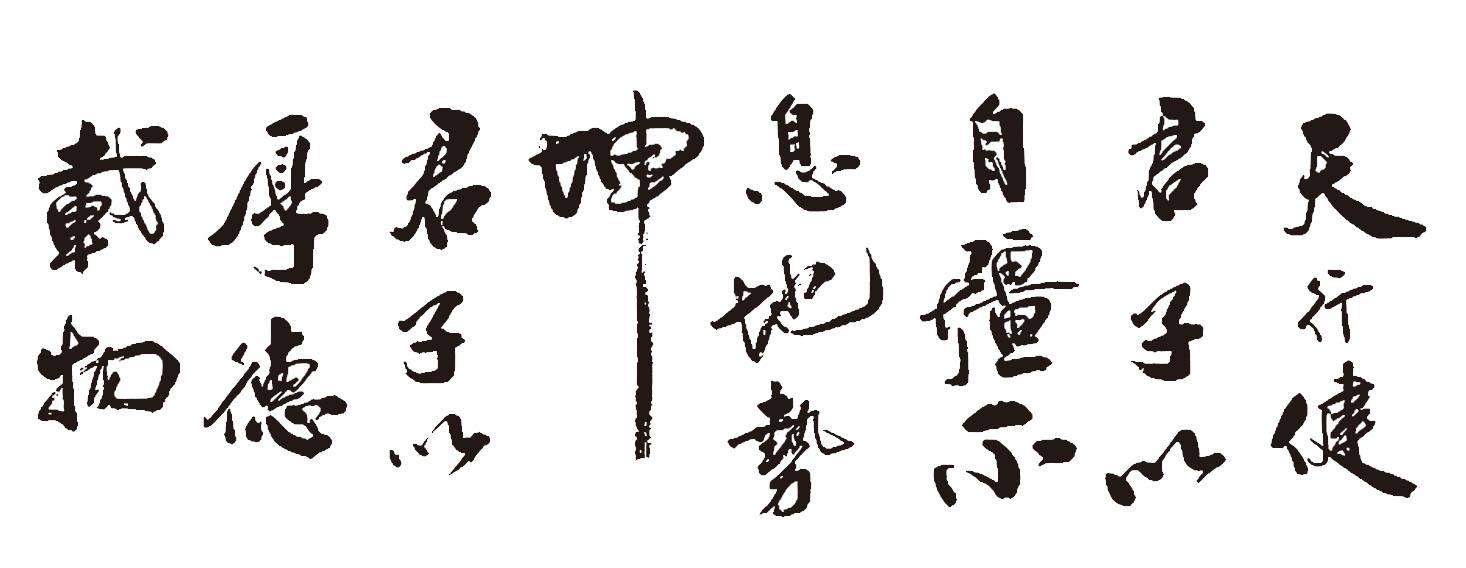 天行健
君子以
自彊不
息地勢
坤
君子以
厚德
載物